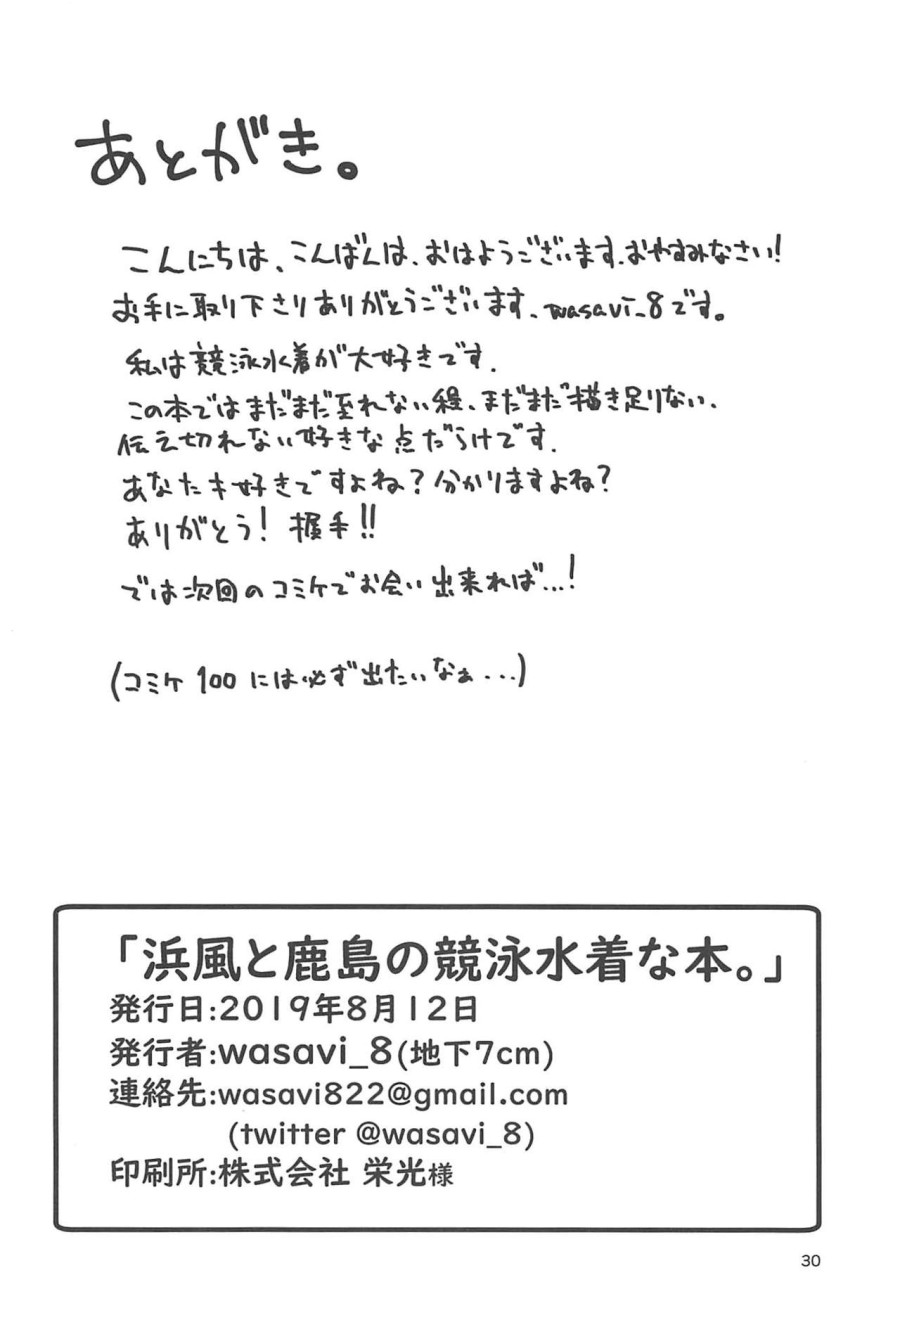 あとがき。
こんにちは、こんばんは、おはようございます、おやすみなさい!
お手に取り下さりありがとうございます、wasavi_8です。
私は競泳水着が大好きです。
この本ではまだまだ至れない程、まだまだ描き足りない、
伝え切れない好きな点だらけです。
あなたも好きですよね?分かりますよね?
ありがとう! 握手!!
では次回のコミケでお会い出来れば...!
(コミケ100には必ず出たいなぁ...)
「浜風と鹿島の競泳水着な本。」
発行日:2019年8月12日
発行者:wasavi_8(地下7cm)
連絡先:wasavi822@gmail.com
(twitter @wasavi_8)
印刷所:株式会社 栄光様
30